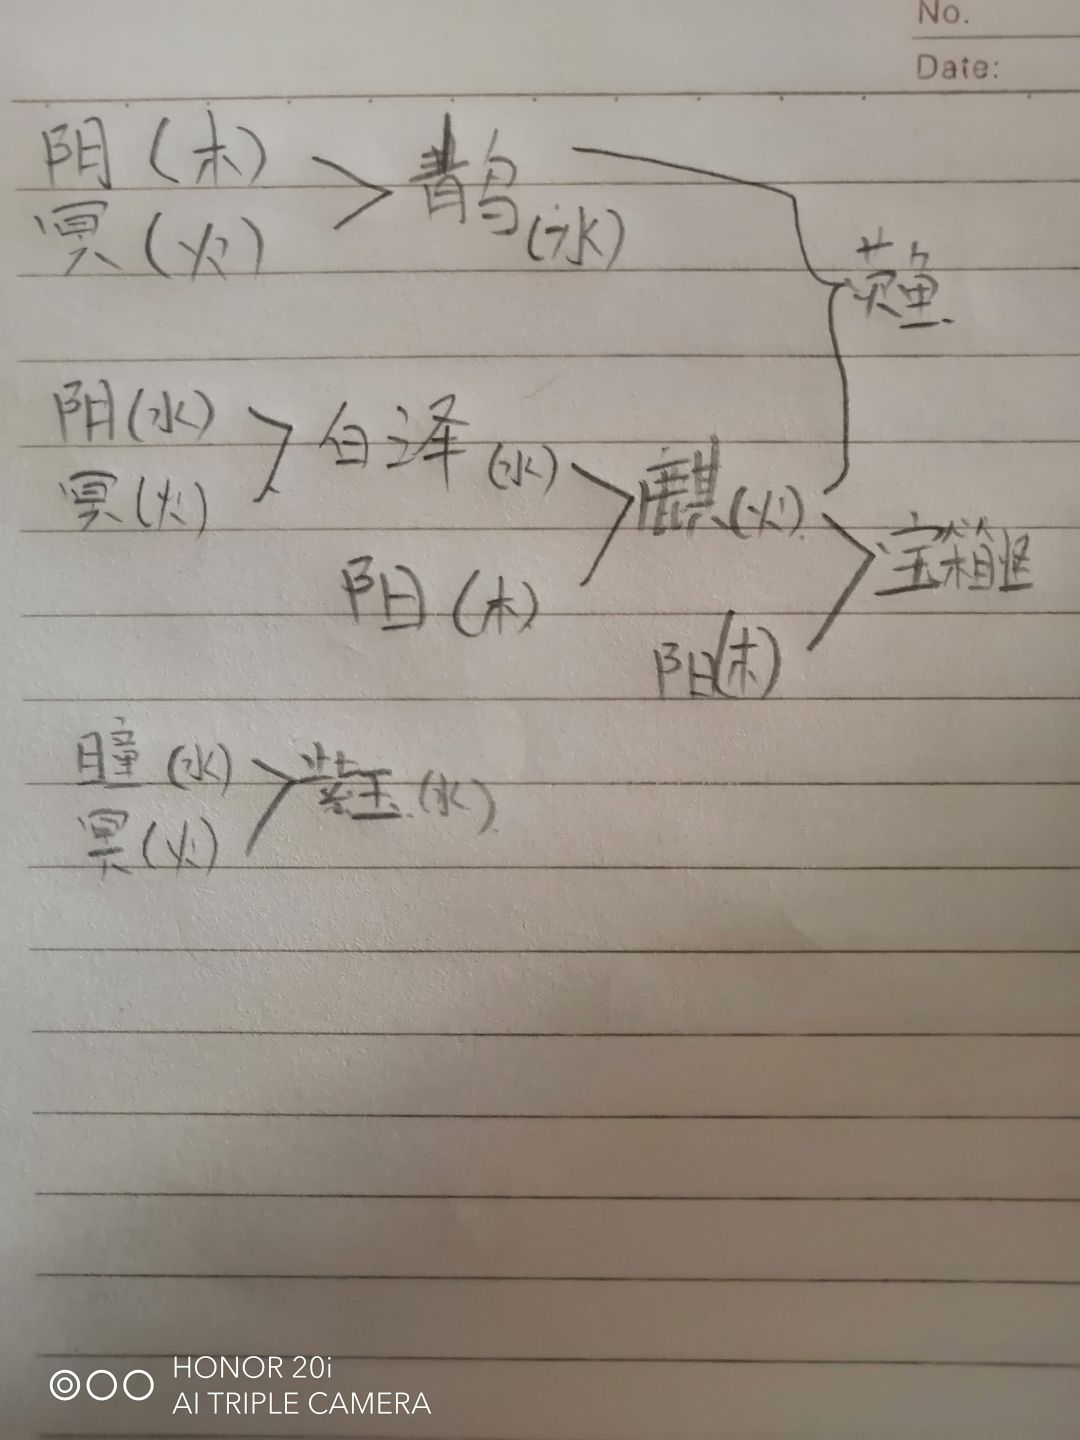 No.
Date:
阳（木）
冥（火）
青鸟（水）
阳（水）
冥（火）
白泽（水）
阳（木）
麒（火）
阳（木）
宝箱怪
瞳（水）
冥（火）
（水）
HONOR 20i
AI TRIPLE CAMERA